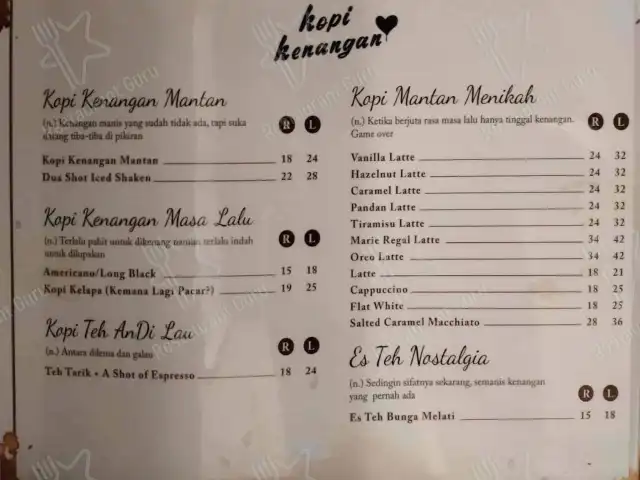 kopi
kenangan
Kopi Kenangan Mantan
(n.) Kenangan manis yang sudah tidak ada, tapi suka
datang tiba-tiba di pikiran
R L
Kopi Kenangan Mantan 18 24
Dua Shot Iced Shaken 22 28
Kopi Kenangan Masa Lalu
(n.) Terlalu pahit untuk dikenang namun terlalu indah
untuk dilupakan
R L
Americano/Long Black 15 18
Kopi Kelapa (Kemana Lagi Pacar?) 19 25
Kopi Teh AnDi Lau
(n.) Antara dilema dan galau
R L
Teh Tarik + A Shot of Espresso 18 24
Kopi Mantan Menikah
(n.) Ketika berjuta rasa masa lalu hanya tinggal kenangan.
Game over
R L
Vanilla Latte 24 32
Hazelnut Latte 24 32
Caramel Latte 24 32
Pandan Latte 24 32
Tiramisu Latte 24 32
Marie Regal Latte 34 42
Oreo Latte 34 42
Latte 18 21
Cappuccino 18 25
Flat White 18 25
Salted Caramel Macchiato 28 36
Es Teh Nostalgia
(n.) Sedingin sifatnya sekarang, semanis kenangan
yang pernah ada
R L
Es Teh Bunga Melati 15 18
Restaurant Guru
Restaurant Guru
Restaurant Guru
Restaurant Guru